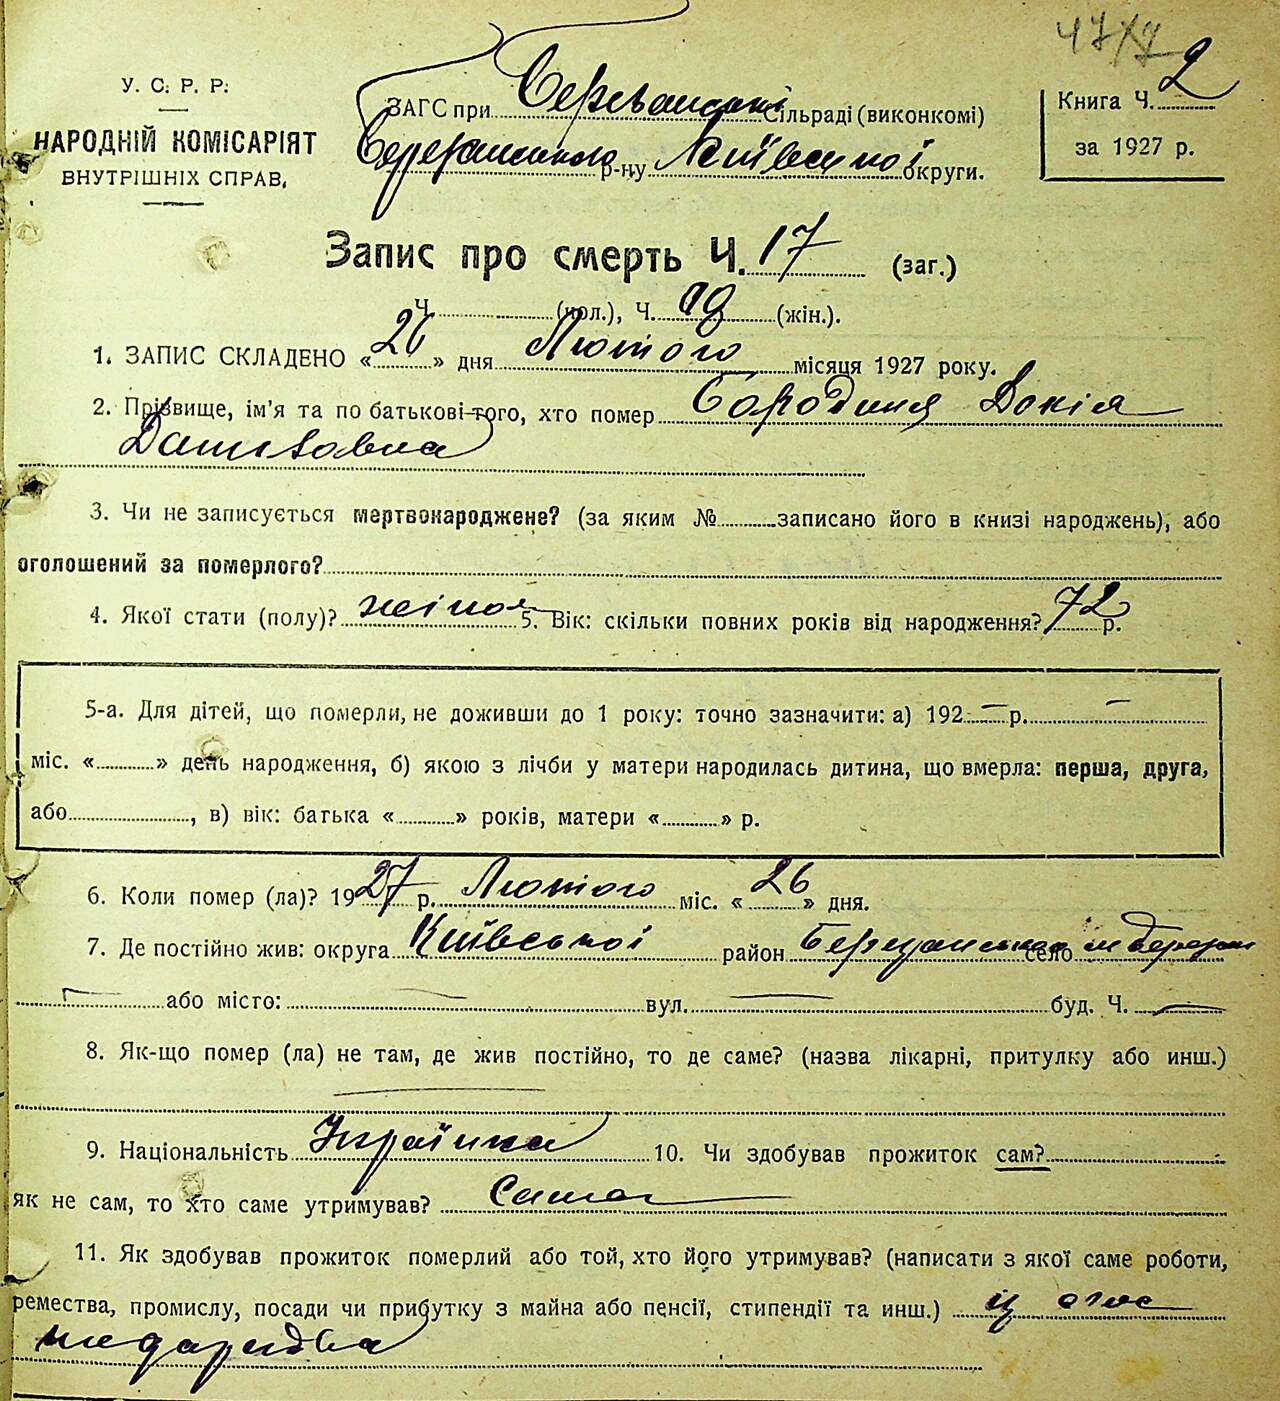 У. С. Р. Р.
НАРОДНІЙ КОМІСАРІЯТ
ВНУТРІШНІХ СПРАВ,
ЗАГС при Березанські Сільраді (виконкомі)
Березанського р-ну Київської округи.
Книга Ч. 2
за 1927 р.
Запис про смерть Ч. 17 (заг.)
Ч. (чол.), Ч. (жін.).
1. ЗАПИС СКЛАДЕНО «26» дня Лютого місяця 1927 року.
2. Прізвище, ім'я та по батькові того, хто помер Бородиня Докія
Данилівна
3. Чи не записується мертвонароджене? (за яким № записано його в книзі народжень), або
оголошений за померлого?
4. Якої стати (полу)? жіноч 5. Вік: скільки повних років від народження? 72 р.
5-а. Для дітей, що померли, не доживши до 1 року: точно зазначити: а) 192 — р. —
міс. « » день народження, б) якою з лічби у матери народилась дитина, що вмерла: перша, друга,
або , в) вік: батька « » років, матери « » р.
6. Коли помер (ла)? 1927 р. Лютого міс. «26» дня.
7. Де постійно жив: округа Київської район Березанськ село м Березань
— або місто: — вул. — буд. Ч. —
8. Як-що помер (ла) не там, де жив постійно, то де саме? (назва лікарні, притулку або инш.)
—
9. Національність Українка 10. Чи здобував прожиток сам?
як не сам, то хто саме утримував? сама
11. Як здобував прожиток померлий або той, хто його утримував? (написати з якої саме роботи,
ремества, промислу, посади чи прибутку з майна або пенсії, стипендії та инш.)